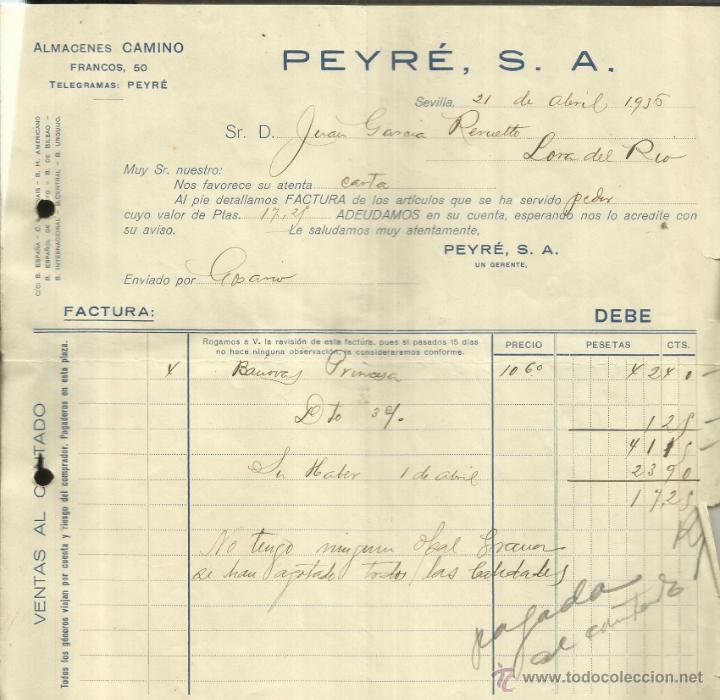 ALMACENES CAMINO
FRANCOS, 50
TELEGRAMAS: PEYRÉ
PEYRÉ, S. A.
Sevilla, 21 de abril 1935
Sr. D. Juan Garcia
Lora del Rio
Muy Sr. nuestro:
Nos favorece su atenta carta
Al pie detallamos FACTURA de los artículos que se ha servido pedir
cuyo valor de Ptas. 17,25 ADEUDAMOS en su cuenta, esperando nos lo acredite con
su aviso. Le saludamos muy atentamente,
PEYRÉ, S. A.
UN GERENTE,
Enviado por Cosario
C/C: B. ESPAÑA - B. H. AMERICANO
B. ESPAÑOL DE - B. DE BILBAO -
B. INTERNACIONAL - B. CENTRAL - B. URQUIJO.
FACTURA:
DEBE
Rogamos a V. la revisión de esta factura, pues si pasados 15 días
no hace ninguna observación, la consideraremos conforme.
PRECIO
PESETAS
CTS.
4 Princesa 10 60 42 40
Dto 3%. 1 25
41 15
Su Haber 1 de abril 23 90
17,25
No tengo ningun
se han agotado todos las
pagada
al contado
VENTAS AL CONTADO
Todos los géneros viajan por cuenta y riesgo del comprador. Pagaderos en esta plaza.
todocoleccion.net